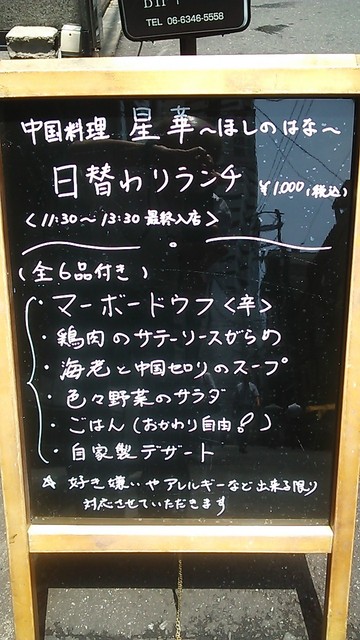 TEL 06-6346-5558
中国料理 星華 〜ほしのはな〜
日替わりランチ ¥1,000(税込)
<11:30〜13:30 最終入店>
(全6品付き)
・マーボードウフ<辛>
・鶏肉のサテーソースがらめ
・海老と中国セロリのスープ
・色々野菜のサラダ
・ごはん(おかわり自由!)
・自家製デザート
☆ 好き嫌いやアレルギーなど出来る限り
対応させていただきます